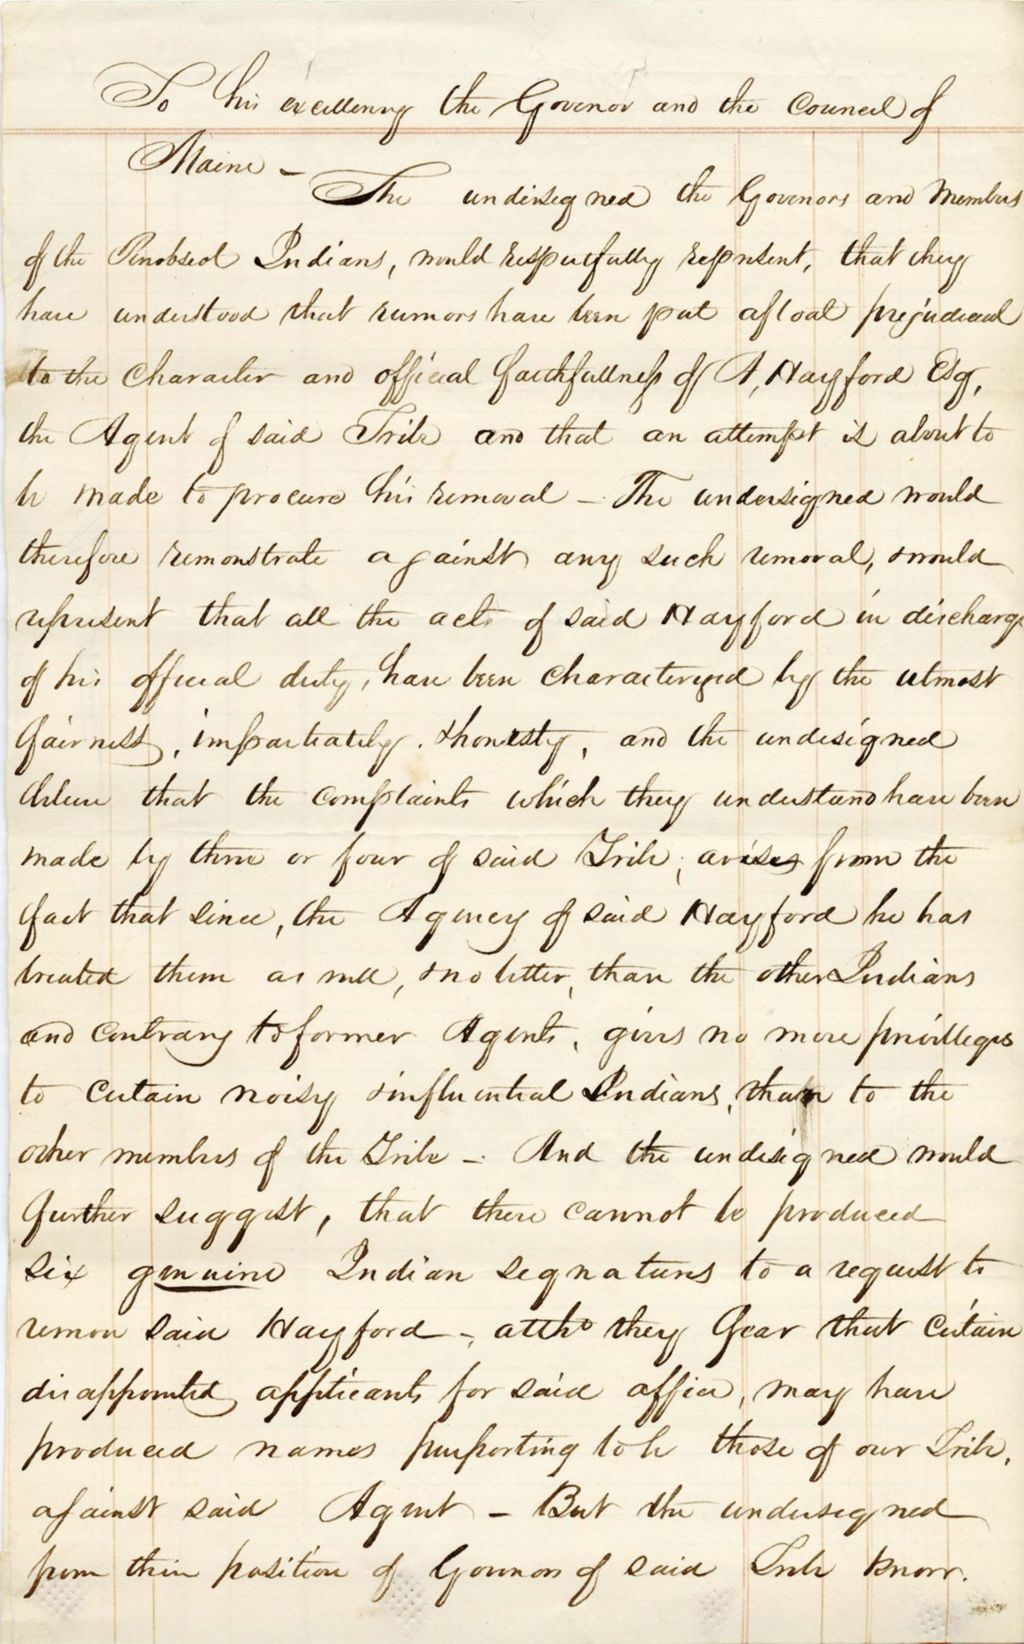 To his excellency the Govenor and the Council of
Maine -
The undersigned the Govenors and Members
of the Penobscot Indians, would respectfully represent, that they
have understood that rumors have been put afloat prejudicial
to the character and official faithfullness of A, Hayford Esq,
the Agent of said Tribe and that an attempt is about to
be made to procure his removal - The undersigned would
therefore remonstrate against any such removal, & would
represent that all the acts of said Hayford in discharge
of his official duty, have been characterized by the utmost
fairness, impartiality, & honesty, and the undersigned
believe that the complaints which they understand have been
made by three or four of said Tribe, arises from the
fact that since, the Agency of said Hayford he has
treated them as well, & no better, than the other Indians
and contrary to former Agents, gives no more privilleges
to certain noisy & influential Indians, than to the
other members of the Tribe - And the undersigned would
further suggest, that there cannot be produced
six genuine Indian segnatures to a request to
remove said Hayford -, altho they fear that certain
disappointed applicants for said office, may have
produced names purporting to be those of our Tribe,
against said Agent - But the undersegned
from their position of Govenors of said Tribe know.